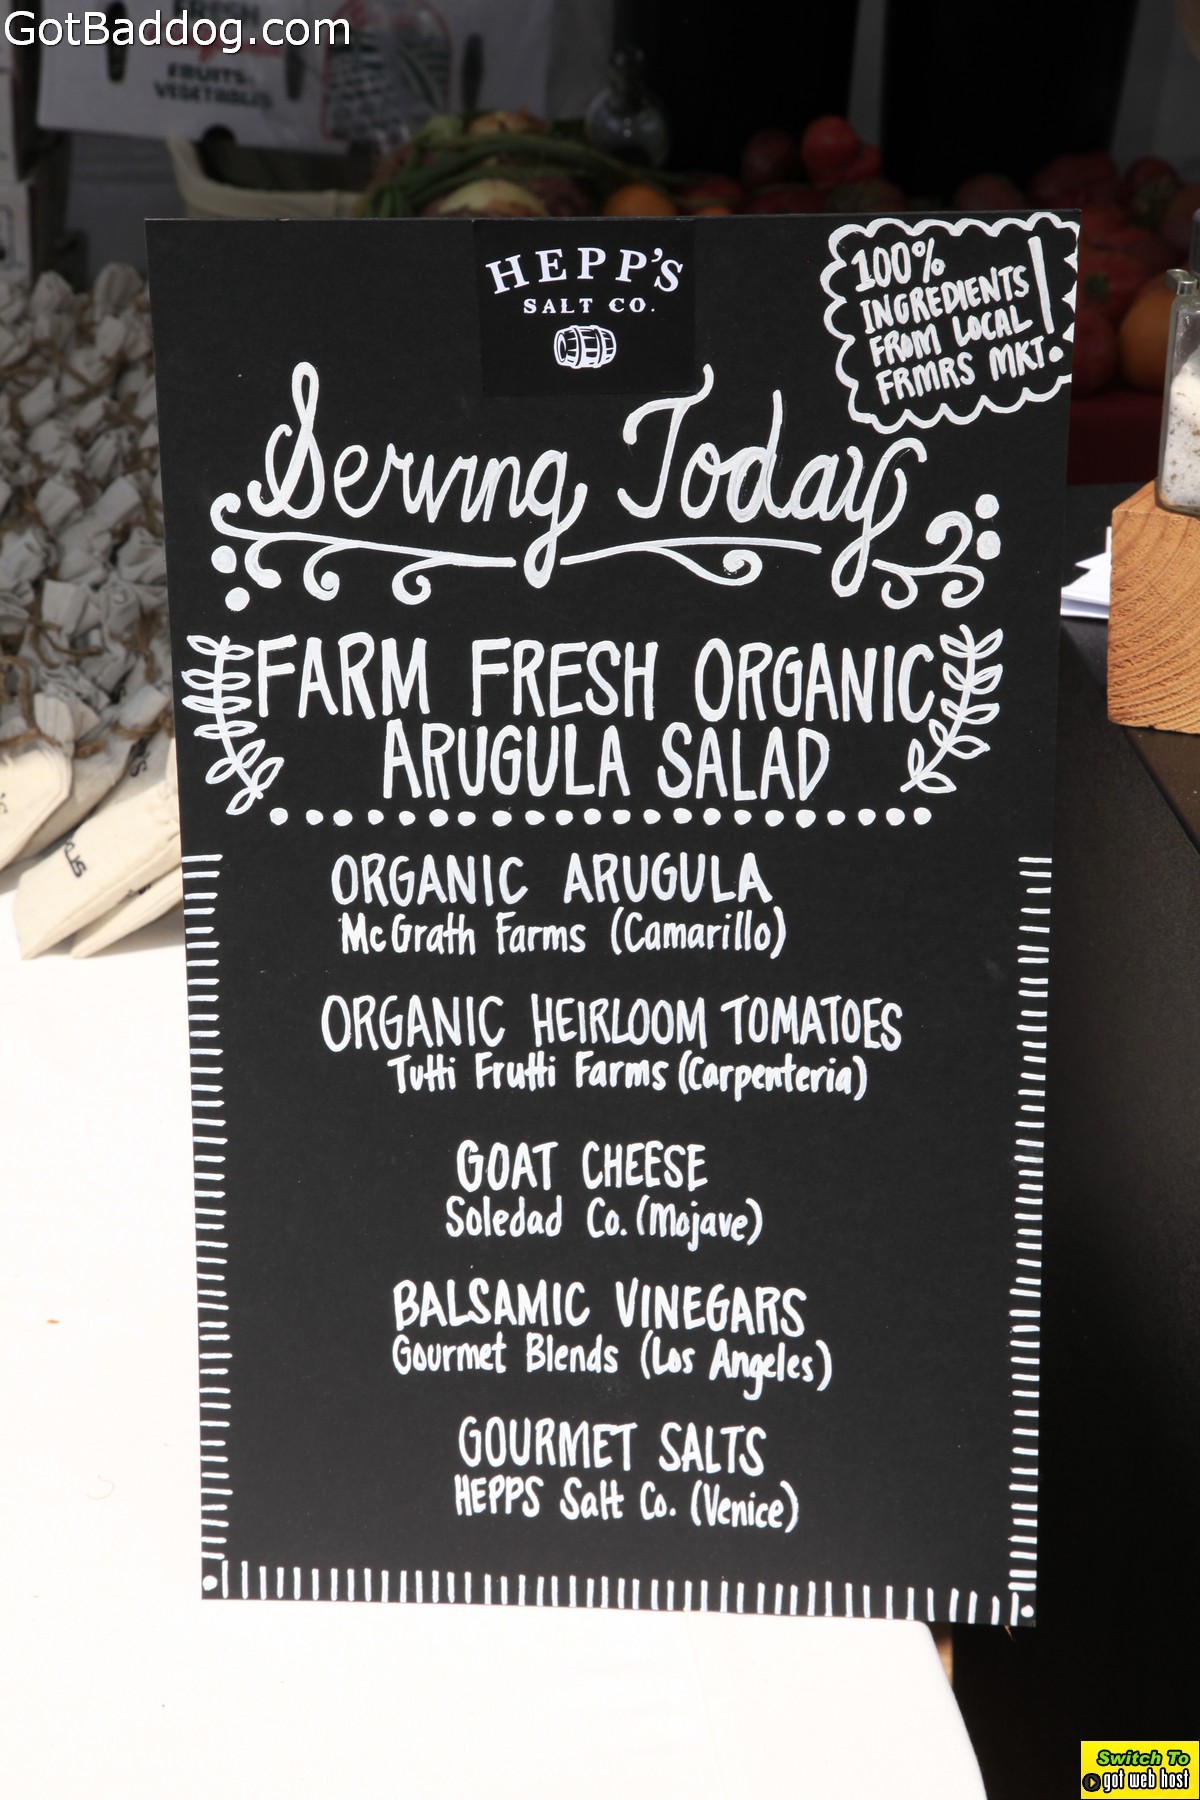 GotBaddog.com
FRESH
FRUITS
VEGETABLES
HEPP'S
SALT CO.
100%
INGREDIENTS
FROM LOCAL
FRMRS MKT!
Serving Today
FARM FRESH ORGANIC
ARUGULA SALAD
ORGANIC ARUGULA
McGrath Farms (Camarillo)
ORGANIC HEIRLOOM TOMATOES
Tutti Frutti Farms (Carpenteria)
GOAT CHEESE
Soledad Co. (Mojave)
BALSAMIC VINEGARS
Gourmet Blends (Los Angeles)
GOURMET SALTS
HEPPS Salt Co. (Venice)
Switch To
got web host